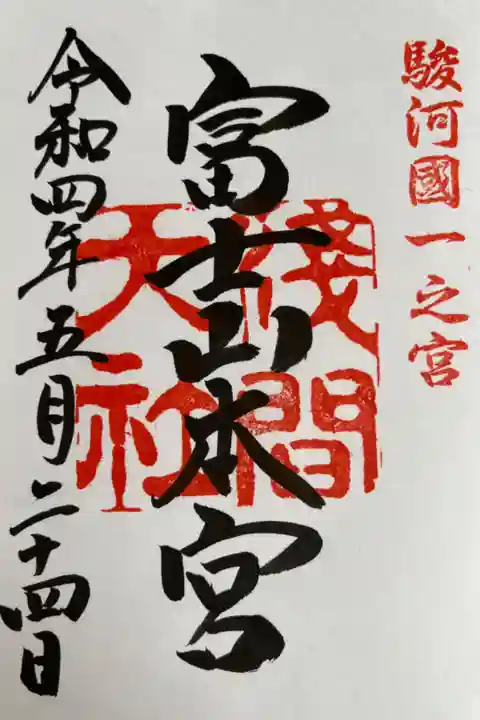 駿河國一之宮
富士山本宮
淺間
大社
令和四年五月二十四日